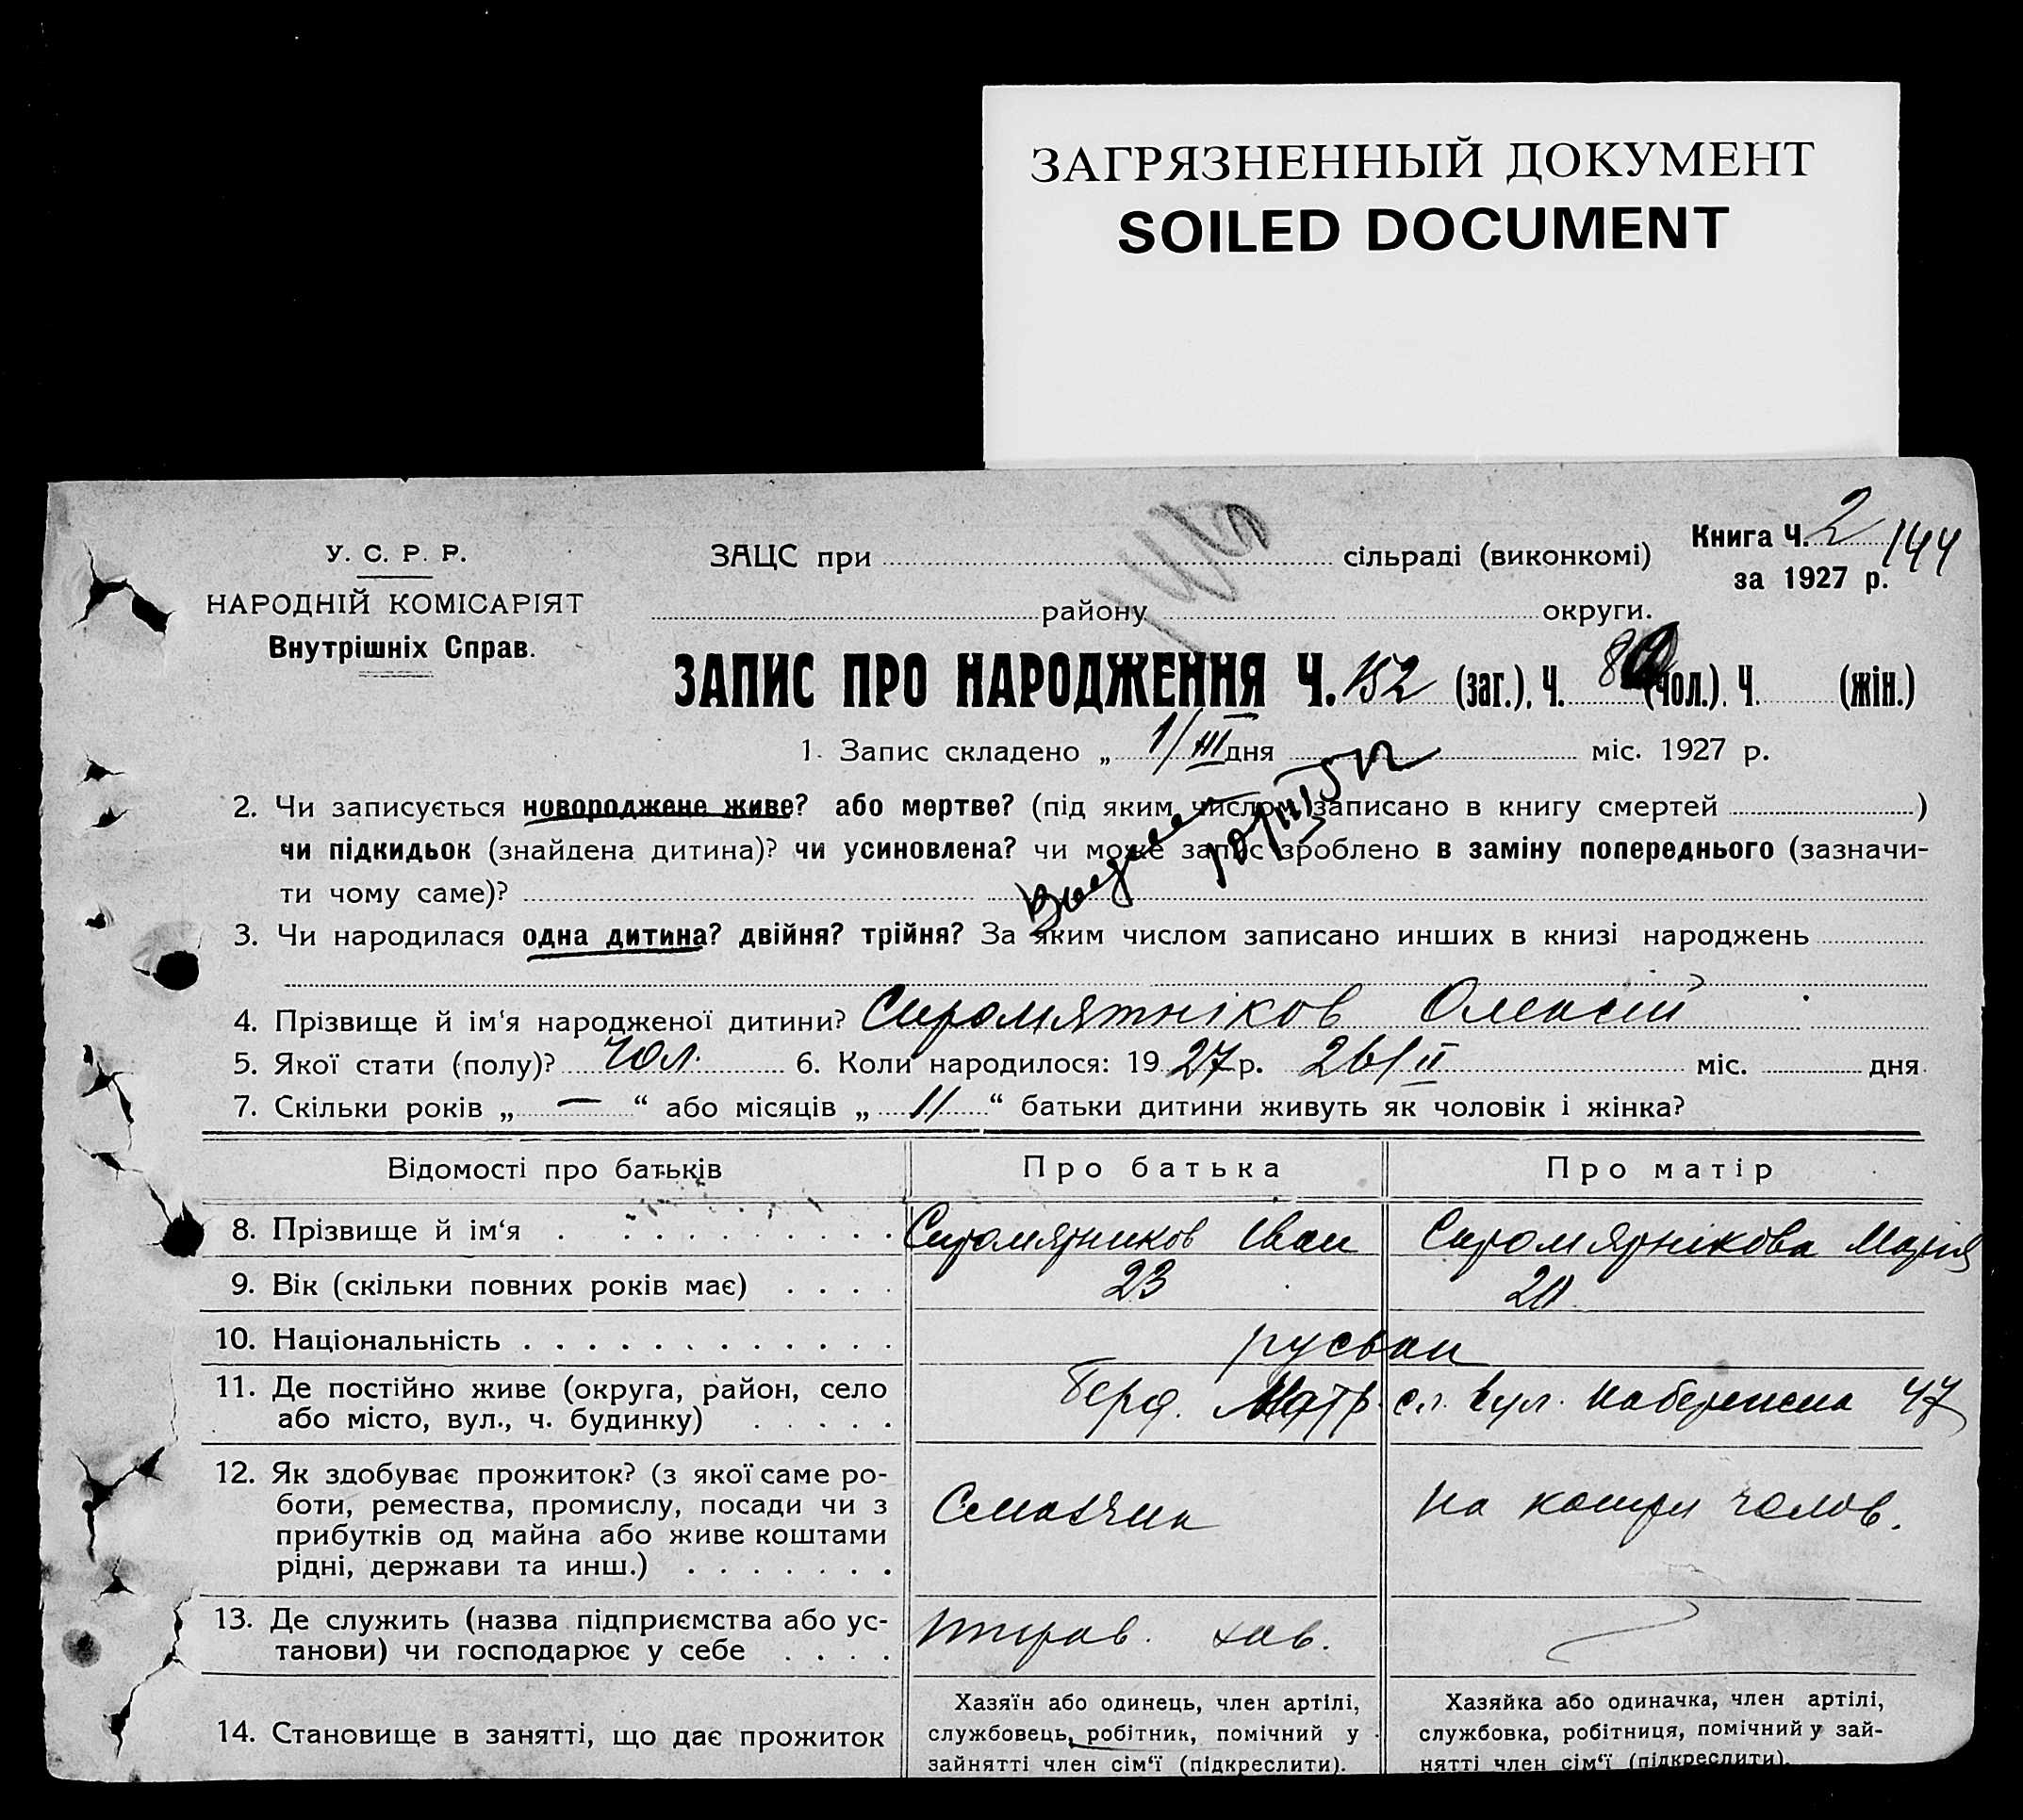 ЗАГРЯЗНЕННЫЙ ДОКУМЕНТ
SOILED DOCUMENT
Книга Ч. 2 144
за 1927 р.
У. С. Р. Р.
НАРОДНІЙ КОМІСАРІЯТ
Внутрішніх Справ.
ЗАЦС при сільраді (виконкомі)
району округи.
ЗАПИС ПРО НАРОДЖЕННЯ Ч. 152 (заг.), Ч. (чол.), Ч. (жін.)
1. Запис складено „ 1/III дня міс. 1927 р.
2. Чи записується новороджене живе? або мертве? (під яким числом записано в книгу смертей )
чи підкидьок (знайдена дитина)? чи усиновлена? чи може запис зроблено в заміну попереднього (зазначи-
ти чому саме)?
3. Чи народилася одна дитина? двійня? трійня? За яким числом записано инших в книзі народжень
4. Прізвище й ім‘я народженої дитини? Сиромятніков Олексій
5. Якої стати (полу)? чол. 6. Коли народилося: 1927 р. 26/II міс. дня
7. Скільки років „ — “ або місяців „ 11 “ батьки дитини живуть як чоловік і жінка?
Відомості про батьків Про батька Про матір
8. Прізвище й ім‘я Сиромятников Іван Сиромятнікова Марія
9. Вік (скільки повних років має) 23 20
10. Національність руськи
11. Де постійно живе (округа, район, село
або місто, вул., ч. будинку) Берд. сл. вул. Набережна 47
12. Як здобуває прожиток? (з якої саме ро-
боти, ремества, промислу, посади чи з
прибутків од майна або живе коштами
рідні, держави та инш.) На кошти чолов.
13. Де служить (назва підприємства або ус-
танови) чи господарює у себе
14. Становище в занятті, що дає прожиток
Хазяїн або одинець, член артілі,
службовець, робітник, помічний у
зайнятті член сім‘ї (підкреслити).
Хазяйка або одиначка, член артілі,
службовка, робітниця, помічний у зай-
нятті член сім‘ї (підкреслити).